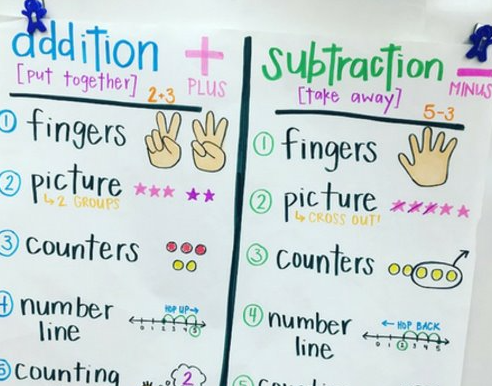 addition + PLUS
[put together]
2+3
① fingers
② picture
↳ 2 GROUPS
③ counters
④ number line
HOP UP→
0 1 2 3 4 5
⑤ counting
2
subtraction − MINUS
[take away]
5-3
① fingers
② picture
↳ CROSS OUT!
③ counters
④ number line
← HOP BACK
0 1 2 3 4 5